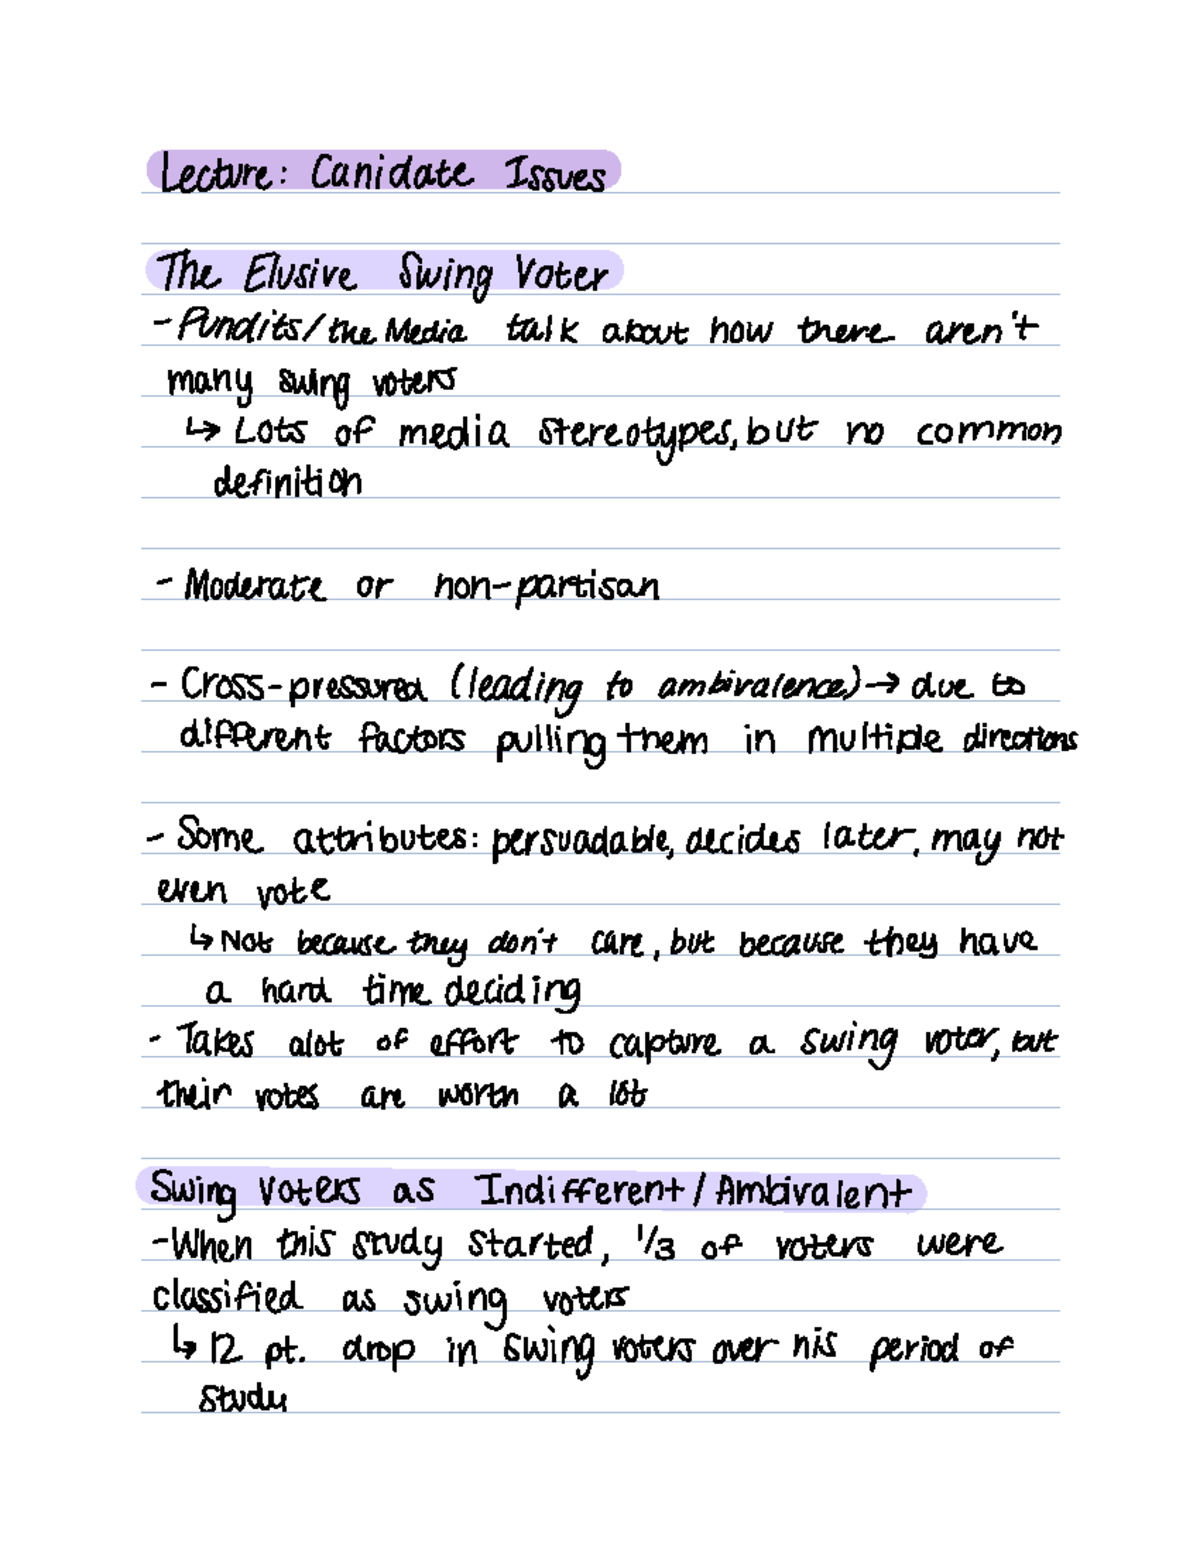 Lecture: Canidate Issues
The Elusive Swing Voter
- Pundits/the Media talk about how there aren't
many swing voters
↳ Lots of media stereotypes, but no common
definition
- Moderate or non-partisan
- Cross-pressured (leading to ambivalence) → due to
different factors pulling them in multiple directions
- Some attributes: persuadable, decides later, may not
even vote
↳ Not because they don't care, but because they have
a hard time deciding
- Takes alot of effort to capture a swing voter, but
their votes are worth a lot
Swing Voters as Indifferent/Ambivalent
- When this study started, 1/3 of voters were
classified as swing voters
↳ 12 pt. drop in swing voters over his period of
study